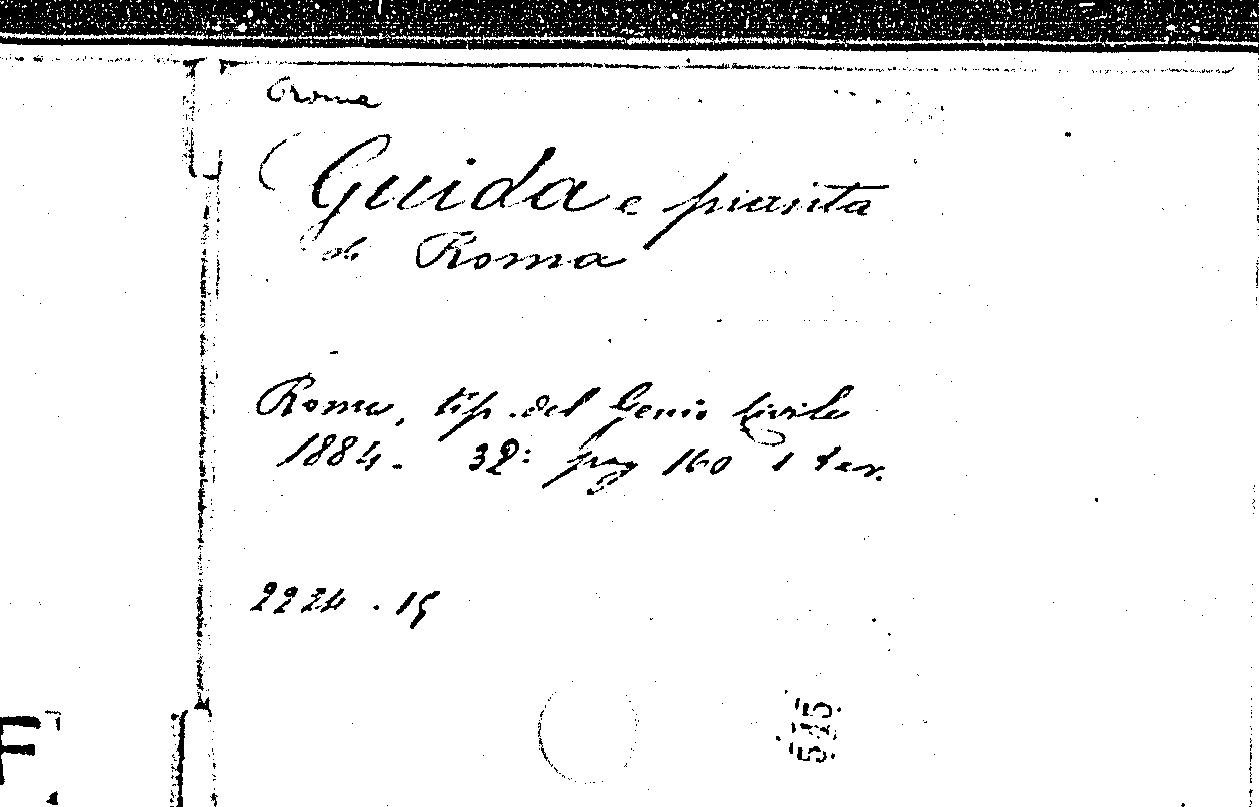 Roma
Guida e pianta
di Roma
Roma, tip. del Genio Civile
1884. 32: pag 160 1 tav.
2224 . 15
545
F